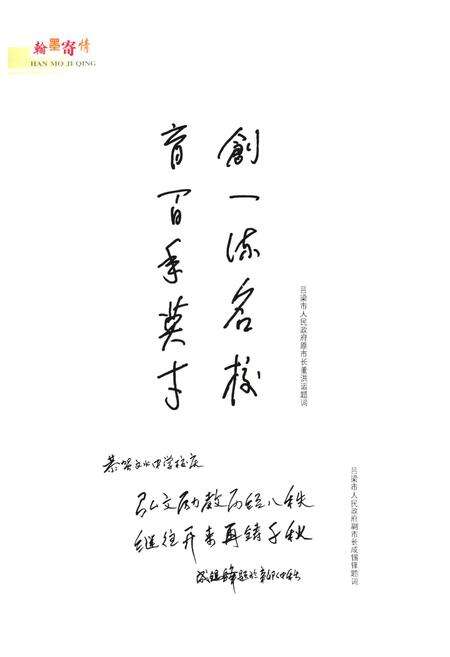 翰墨寄情
HAN MO JI QING
創一流名校
育百年英才
吕梁市人民政府原市长董洪运题词
恭贺文水中学校庆
弘文励教历经八秩
继往开来再铸千秋
成锡锋题于辛卯仲秋
吕梁市人民政府副市长成锡锋题词